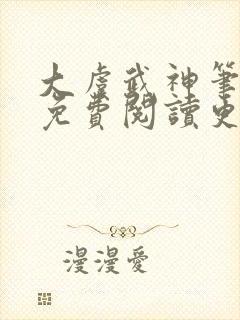 大虞武神筆
免費閱讀
漫漫愛